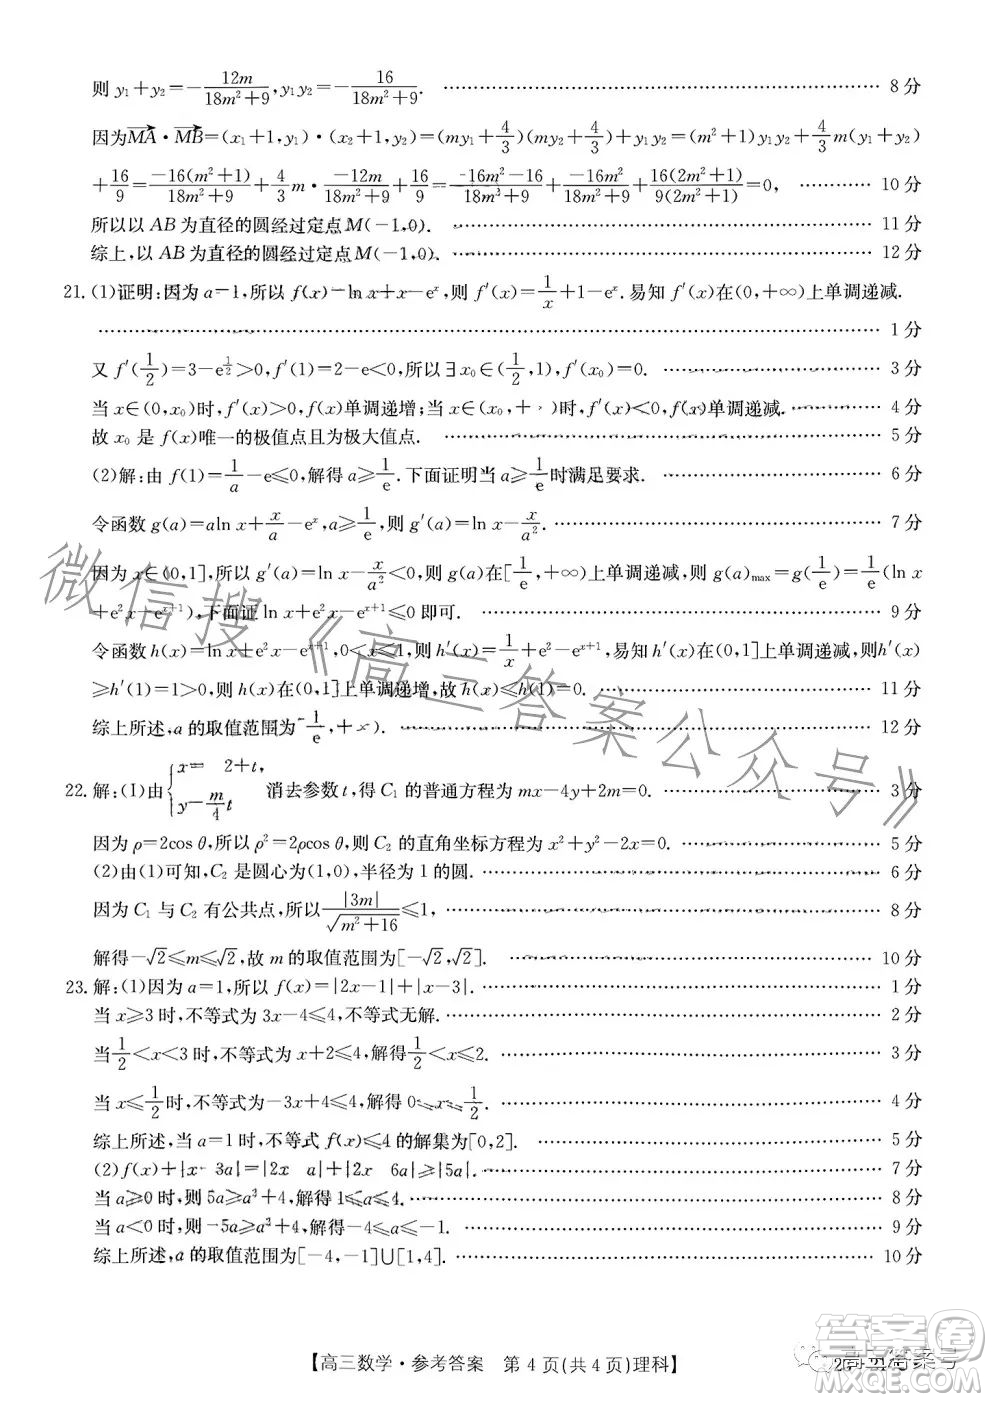 则 y₁+y₂=-12m/(18m²+9),y₁y₂=-16/(18m²+9). ………… 8 分
因为MA·MB=(x₁+1,y₁)·(x₂+1,y₂)=(my₁+4/3)(my₂+4/3)+y₁y₂=(m²+1)y₁y₂+4/3m(y₁+y₂)
+16/9=-16(m²+1)/(18m²+9)+4/3m·-12m/(18m²+9)+16/9=(-16m²-16)/(18m²+9)+-16m²/(18m²+9)+16(2m²+1)/9(2m²+1)=0, ………… 10 分
所以以 AB 为直径的圆经过定点 M(-1,0). ………… 11 分
综上,以 AB 为直径的圆经过定点 M(-1,0). ………… 12 分
21. (1)证明:因为 a=1,所以 f(x)=ln x+x-eˣ,则 f′(x)=1/x+1-eˣ.易知 f′(x)在(0,+∞)上单调递减.
………… 1 分
又 f′(1/2)=3-e^(1/2)>0,f′(1)=2-e<0,所以∃x₀∈(1/2,1),f′(x₀)=0. ………… 3 分
当 x∈(0,x₀)时,f′(x)>0,f(x)单调递增;当 x∈(x₀,+ )时,f′(x)<0,f(x)单调递减. ………… 4 分
故 x₀ 是 f(x)唯一的极值点且为极大值点. ………… 5 分
(2)解:由 f(1)=1/a-e≤0,解得 a≥1/e.下面证明当 a≥1/e时满足要求. ………… 6 分
令函数 g(a)=aln x+x/a-eˣ,a≥1/e,则 g′(a)=ln x-x/a². ………… 7 分
因为 x∈(0,1],所以 g′(a)=ln x-x/a²<0,则 g(a)在[1/e,+∞)上单调递减,则 g(a)max=g(1/e)=1/e(ln x
+e²x-e^(x+1)),下面证 ln x+e²x-e^(x+1)≤0 即可. ………… 9 分
令函数 h(x)=ln x+e²x-e^(x+1),0<x≤1,则 h′(x)=1/x+e²-e^(x+1),易知 h′(x)在(0,1]上单调递减,则 h′(x)
≥h′(1)=1>0,则 h(x)在(0,1]上单调递增,故 h(x)≤h(1)=0. ………… 11 分
综上所述,a 的取值范围为 1/e,+ ). ………… 12 分
22. 解:(1)由{x= 2+t, y=m/4t 消去参数 t,得 C₁ 的普通方程为 mx-4y+2m=0. ………… 3 分
因为 ρ=2cos θ,所以 ρ²=2ρcos θ,则 C₂ 的直角坐标方程为 x²+y²-2x=0. ………… 5 分
(2)由(1)可知,C₂ 是圆心为(1,0),半径为 1 的圆. ………… 6 分
因为 C₁ 与 C₂ 有公共点,所以|3m|/√(m²+16)≤1, ………… 8 分
解得-√2≤m≤√2,故 m 的取值范围为[-√2,√2]. ………… 10 分
23. 解:(1)因为 a=1,所以 f(x)=|2x-1|+|x-3|. ………… 1 分
当 x≥3 时,不等式为 3x-4≤4,不等式无解. ………… 2 分
当1/2<x<3 时,不等式为 x+2≤4,解得1/2<x≤2. ………… 3 分
当 x≤1/2时,不等式为-3x+4≤4,解得 0≤x≤1/2. ………… 4 分
综上所述,当 a=1 时,不等式 f(x)≤4 的解集为[0,2]. ………… 5 分
(2)f(x)+|x- 3a|=|2x a|+|2x 6a|≥|5a|. ………… 7 分
当 a≥0 时,则 5a≥a²+4,解得 1≤a≤4. ………… 8 分
当 a<0 时,则-5a≥a²+4,解得-4≤a≤-1. ………… 9 分
综上所述,a 的取值范围为[-4,-1]∪[1,4]. ………… 10 分
微信搜《高三答案公众号》
【高三数学·参考答案 第 4 页(共 4 页)理科】
答案圈
MXQE.COM